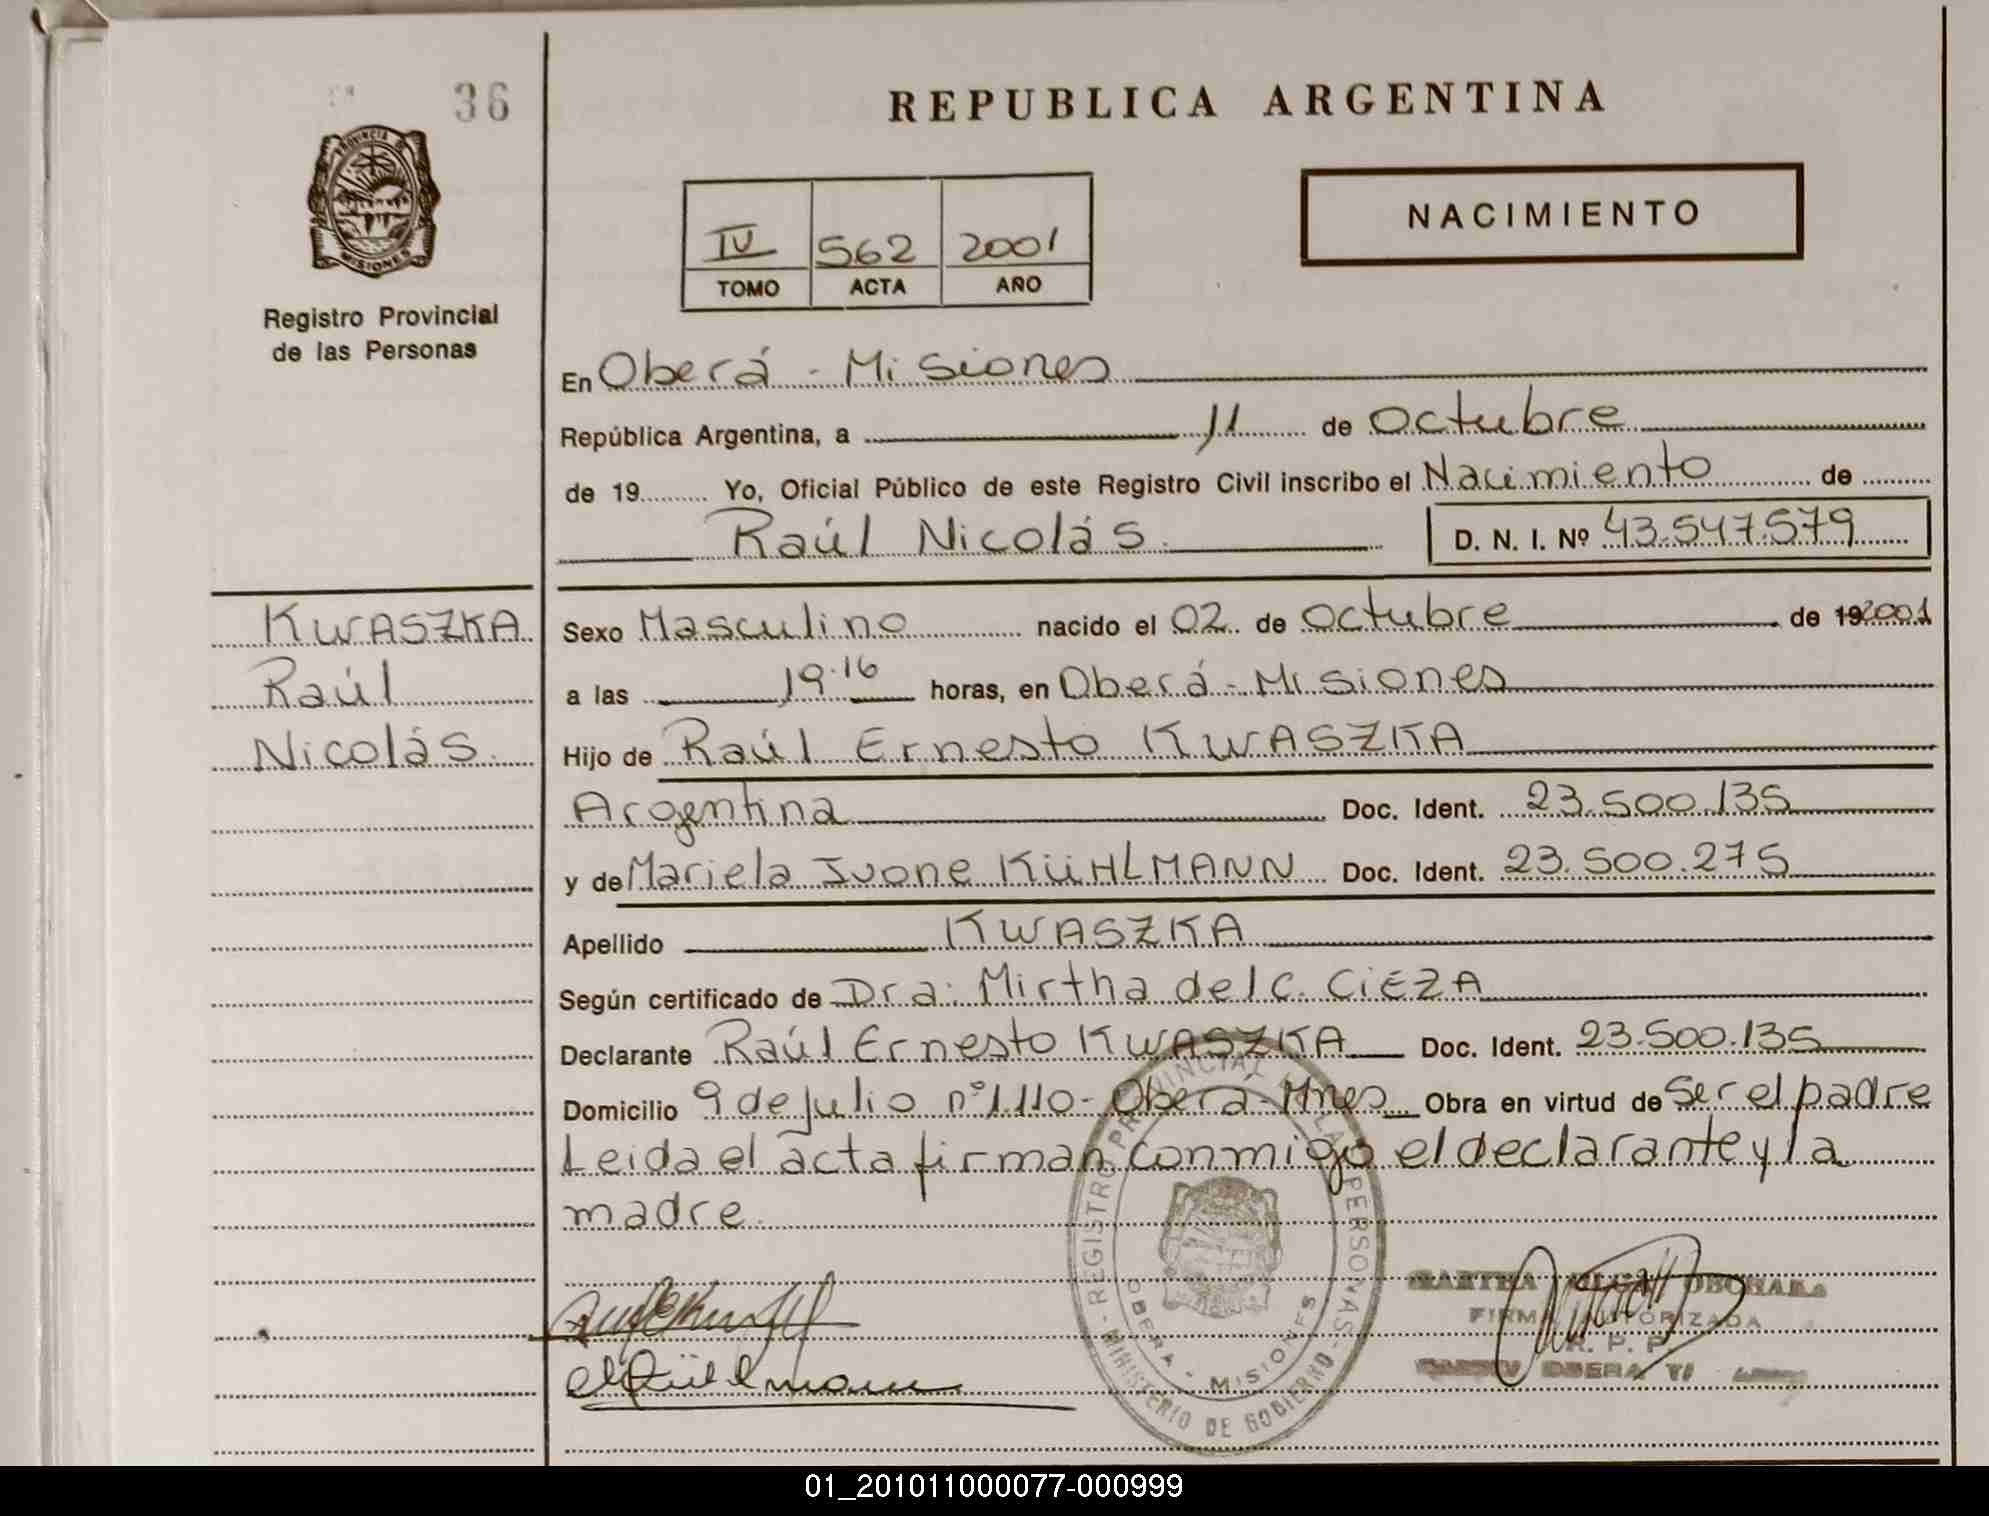 36
REPUBLICA ARGENTINA
PROVINCIA D
MISIONES
Registro Provincial
de las Personas
NACIMIENTO
IV 562 2001
TOMO ACTA AÑO
En Oberá - Misiones
República Argentina, a 11 de Octubre
de 19 Yo, Oficial Público de este Registro Civil inscribo el Nacimiento de
Raúl Nicolás. D. N. I. Nº 43.547.579
KWASZKA
Raúl
Nicolás.
Sexo Masculino nacido el 02 de Octubre de 192001
a las 19.16 horas, en Oberá - Misiones
Hijo de Raúl Ernesto KWASZKA
Argentina Doc. Ident. 23.500.135
y de Mariela Ivone KÜHLMANN Doc. Ident. 23.500.275
Apellido KWASZKA
Según certificado de Dra. Mirtha del C. CIEZA
Declarante Raúl Ernesto KWASZKA Doc. Ident. 23.500.135
Domicilio 9 de Julio nº 1.110 - Oberá - Mnes Obra en virtud de Ser el padre
Leida el acta firman conmigo el declarante y la
madre.
REGISTRO PROVINCIAL LAS PERSONAS - MINISTERIO DE GOBIERNO -
OBERA - MISIONES
FIRMA AUTORIZADA
R. P. P.
OBERA
01_201011000077-000999